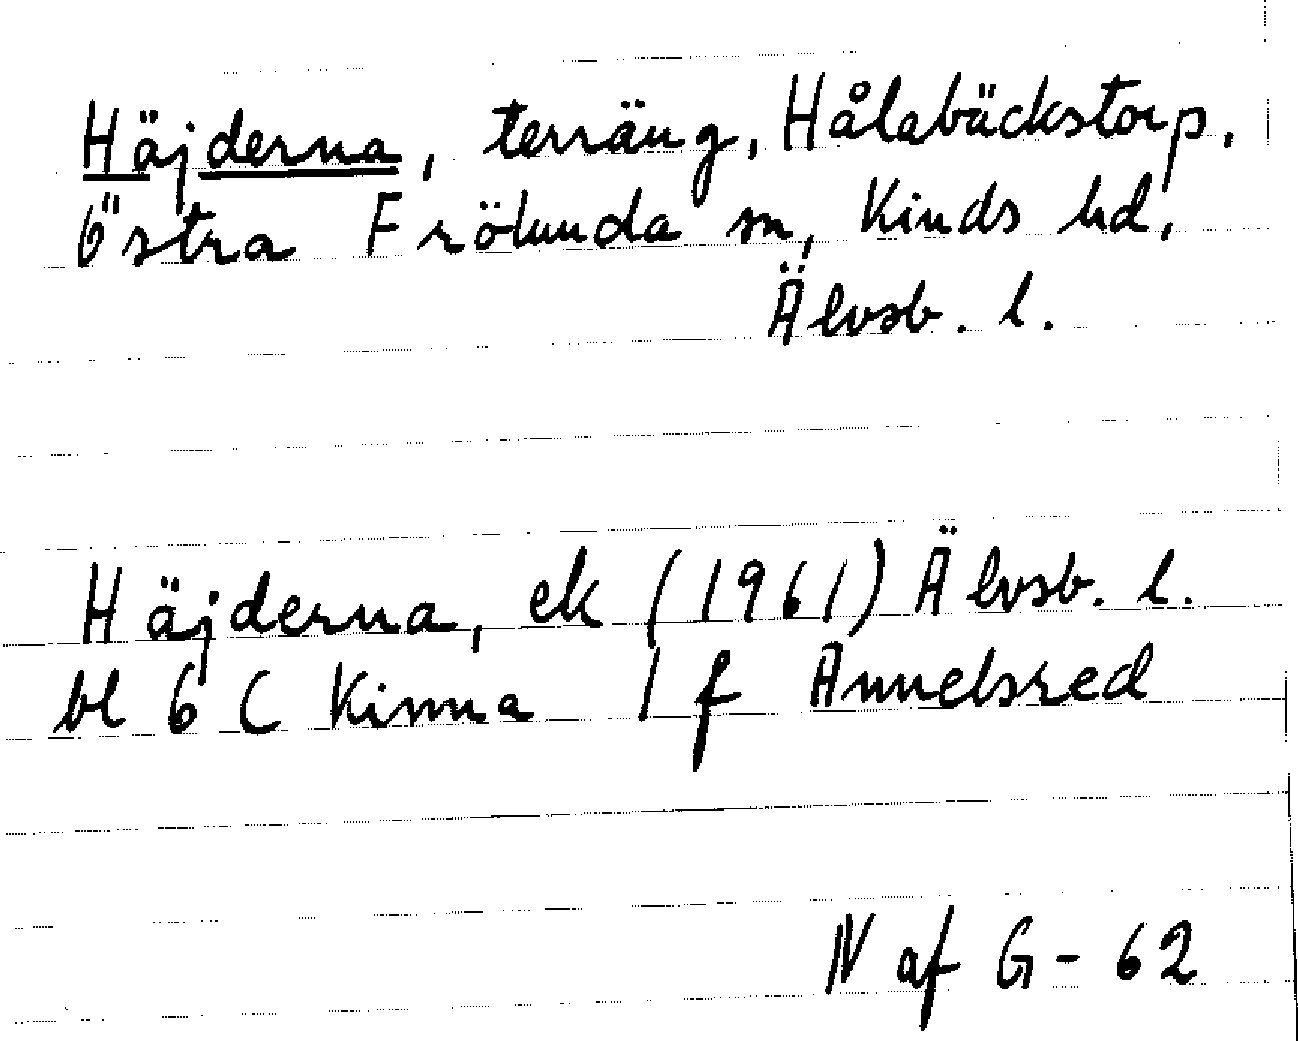 Häjderna, terräng, Hålabäckstorp,
Östra Frölunda sn, Kinds hd,
Älvsb. l.
Häjderna, ek (1961) Älvsb. l.
bl 6 C Kinna 1 f Annelsred
N af G - 62